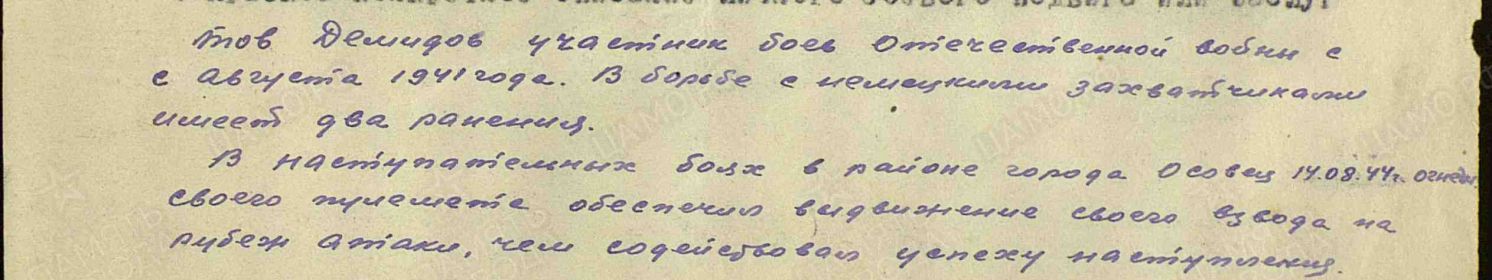 тов Демидов участник боев Отечественной войны с
с августа 1941 года. В борьбе с немецкими захватчиками
имеет два ранения.
В наступательных боях в районе города Осовец 14.08.44г. огнем
своего пулемета обеспечил выдвижение своего взвода на
рубеж атаки, чем содействовал успеху наступления.